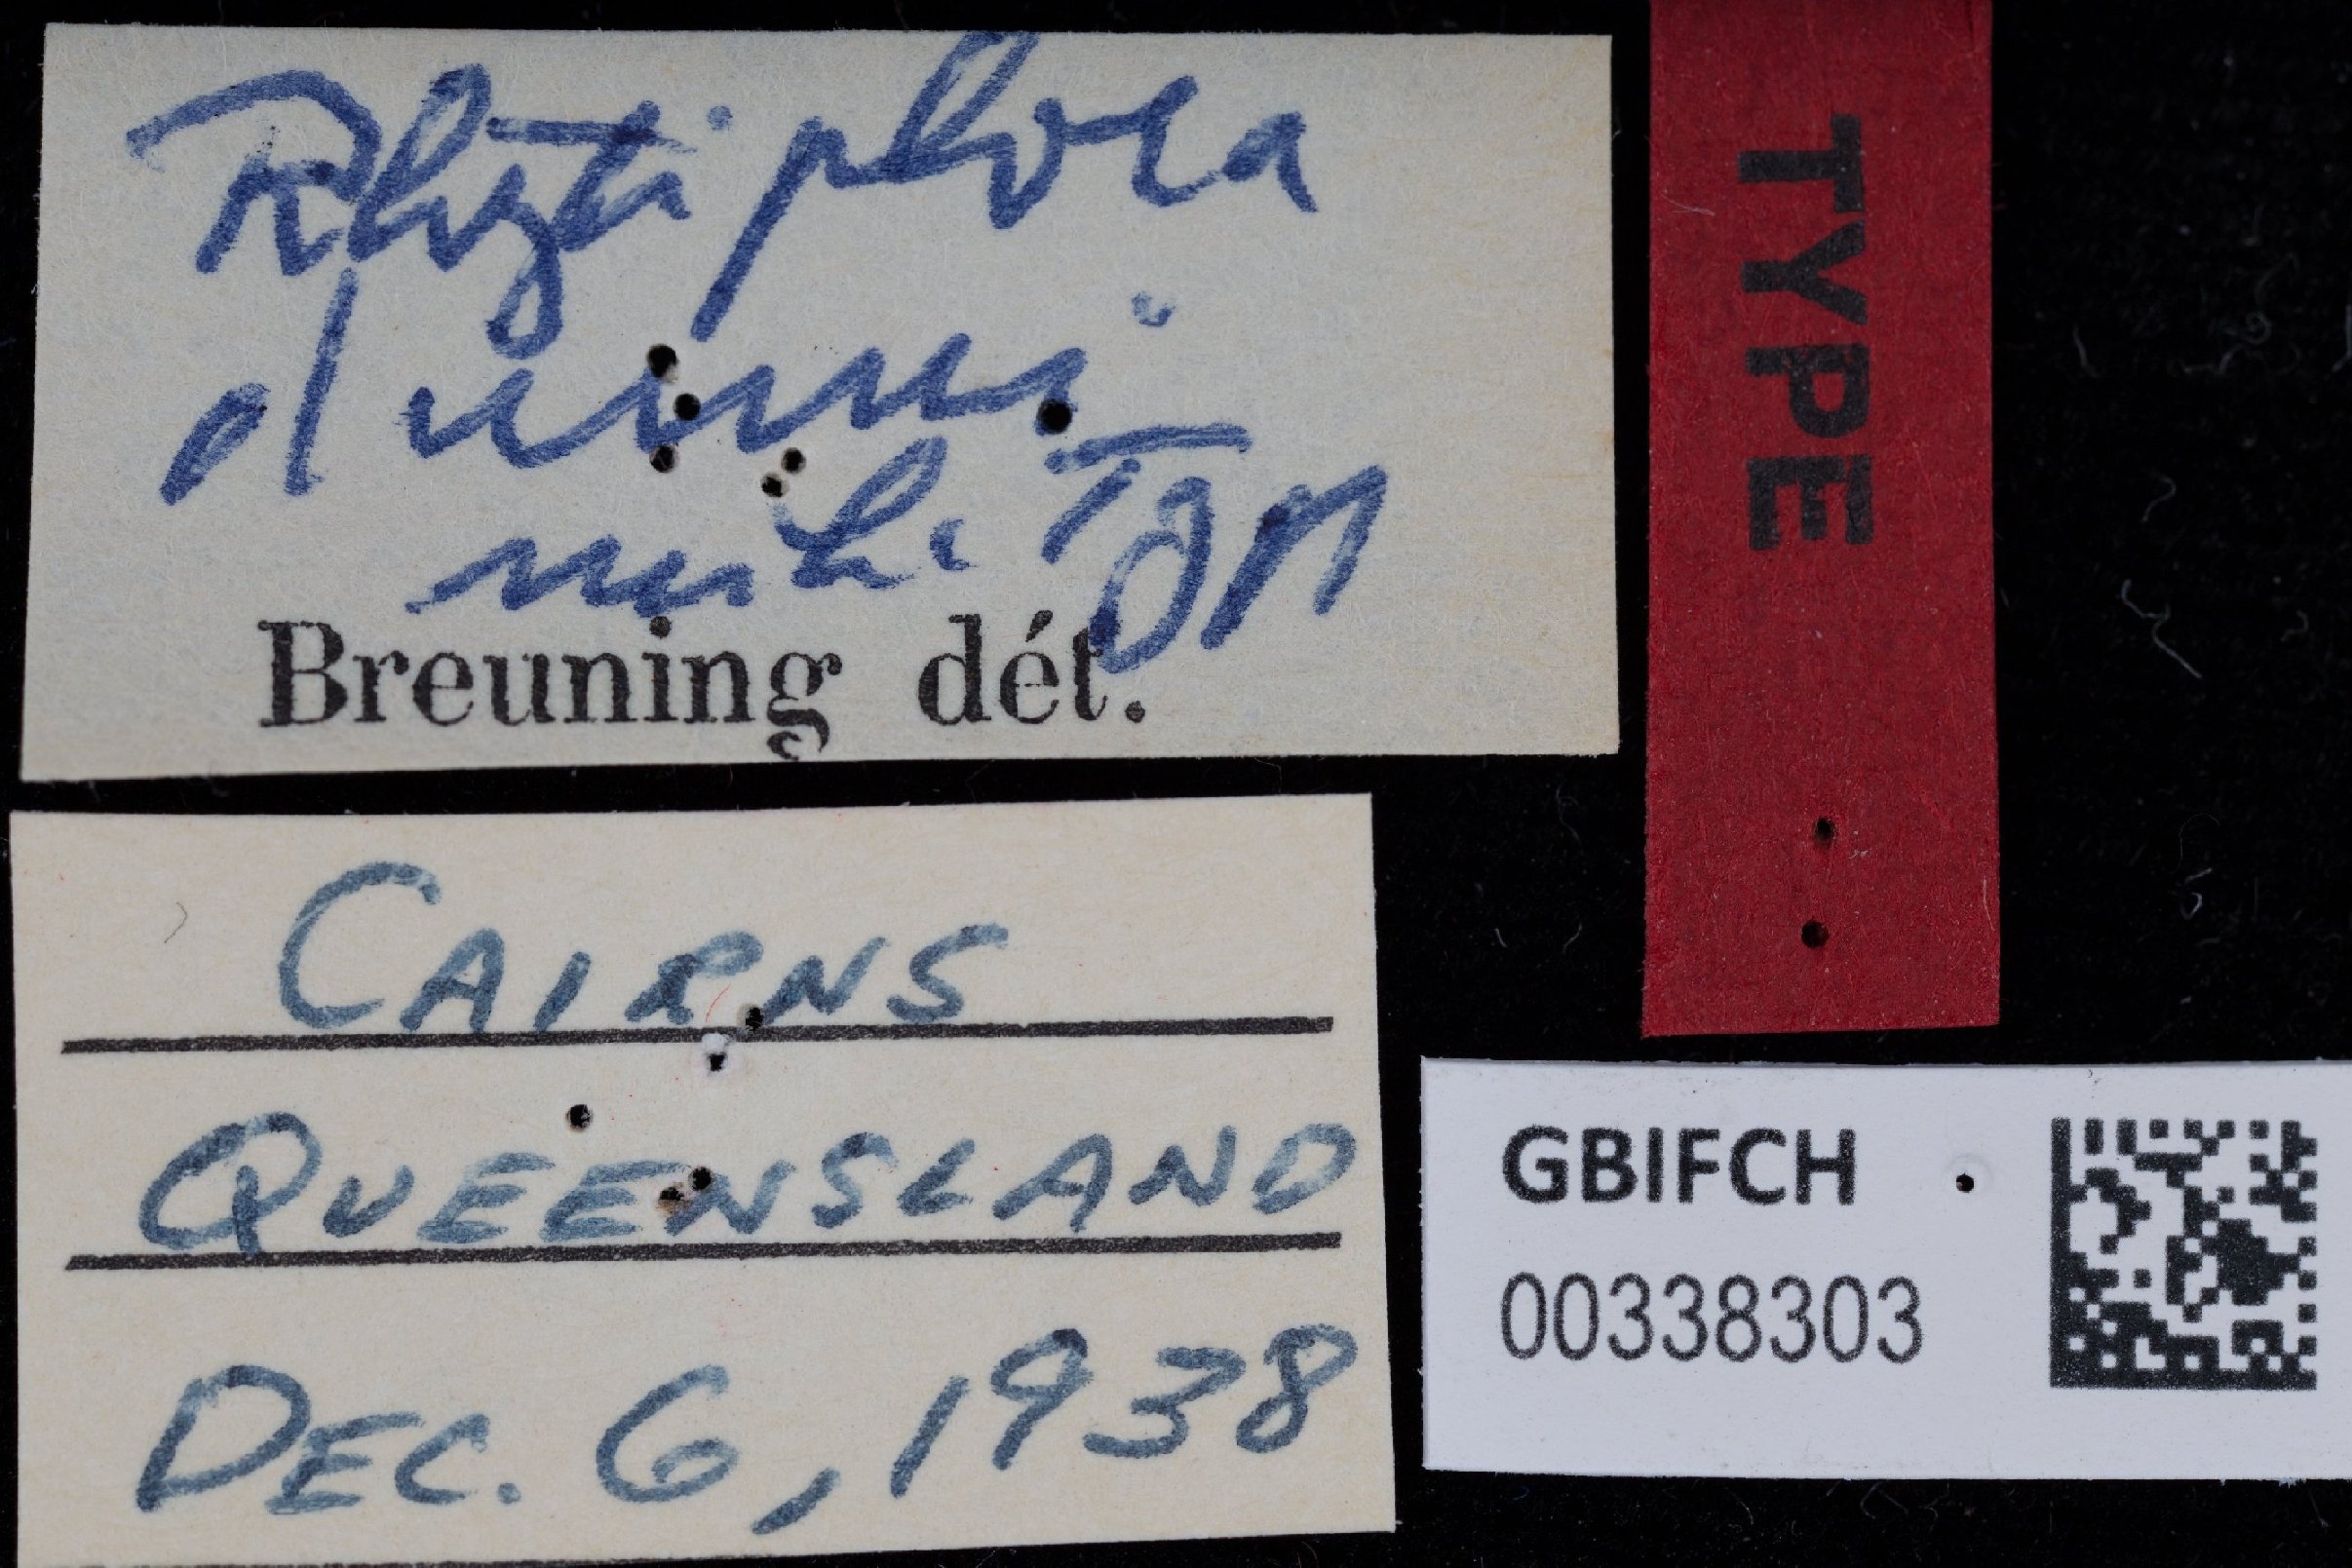 Rhytiphora
dunni
mihi Typ
Breuning dét.
TYPE
CAIRNS
QUEENSLAND
DEC. 6, 1938
GBIFCH
00338303